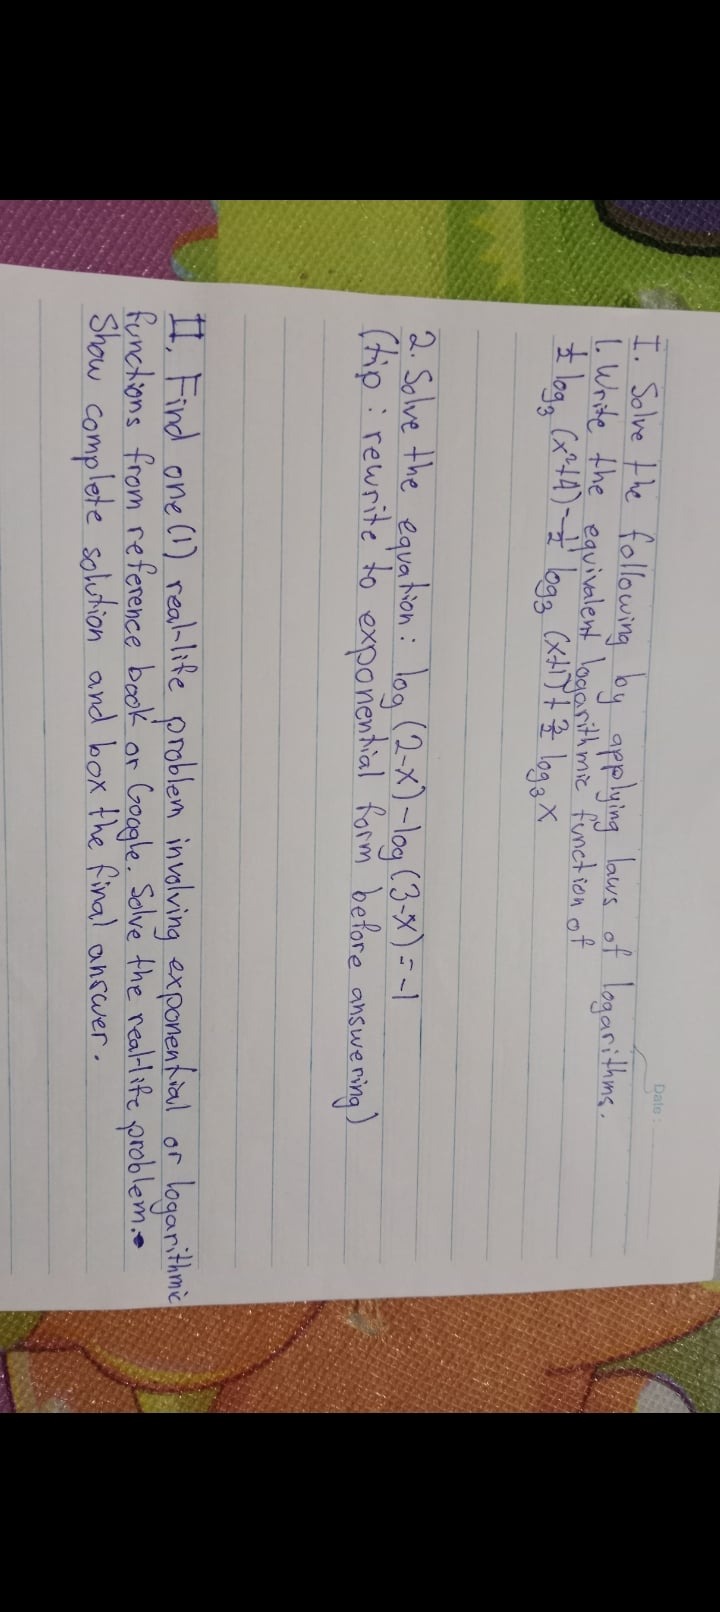 Date:
I. Solve the following by applying laws of logarithms.
1. Write the equivalent logarithmic function of
½ log₃ (x²+4) - ½ log₃ (x+1) + 3/2 log₃ x
2. Solve the equation: log (2-x) - log (3-x) = -1
(tip: rewrite to exponential form before answering)
II. Find one (1) real-life problem involving exponential or logarithmic
functions from reference book or Google. Solve the real-life problem.
Show complete solution and box the final answer.